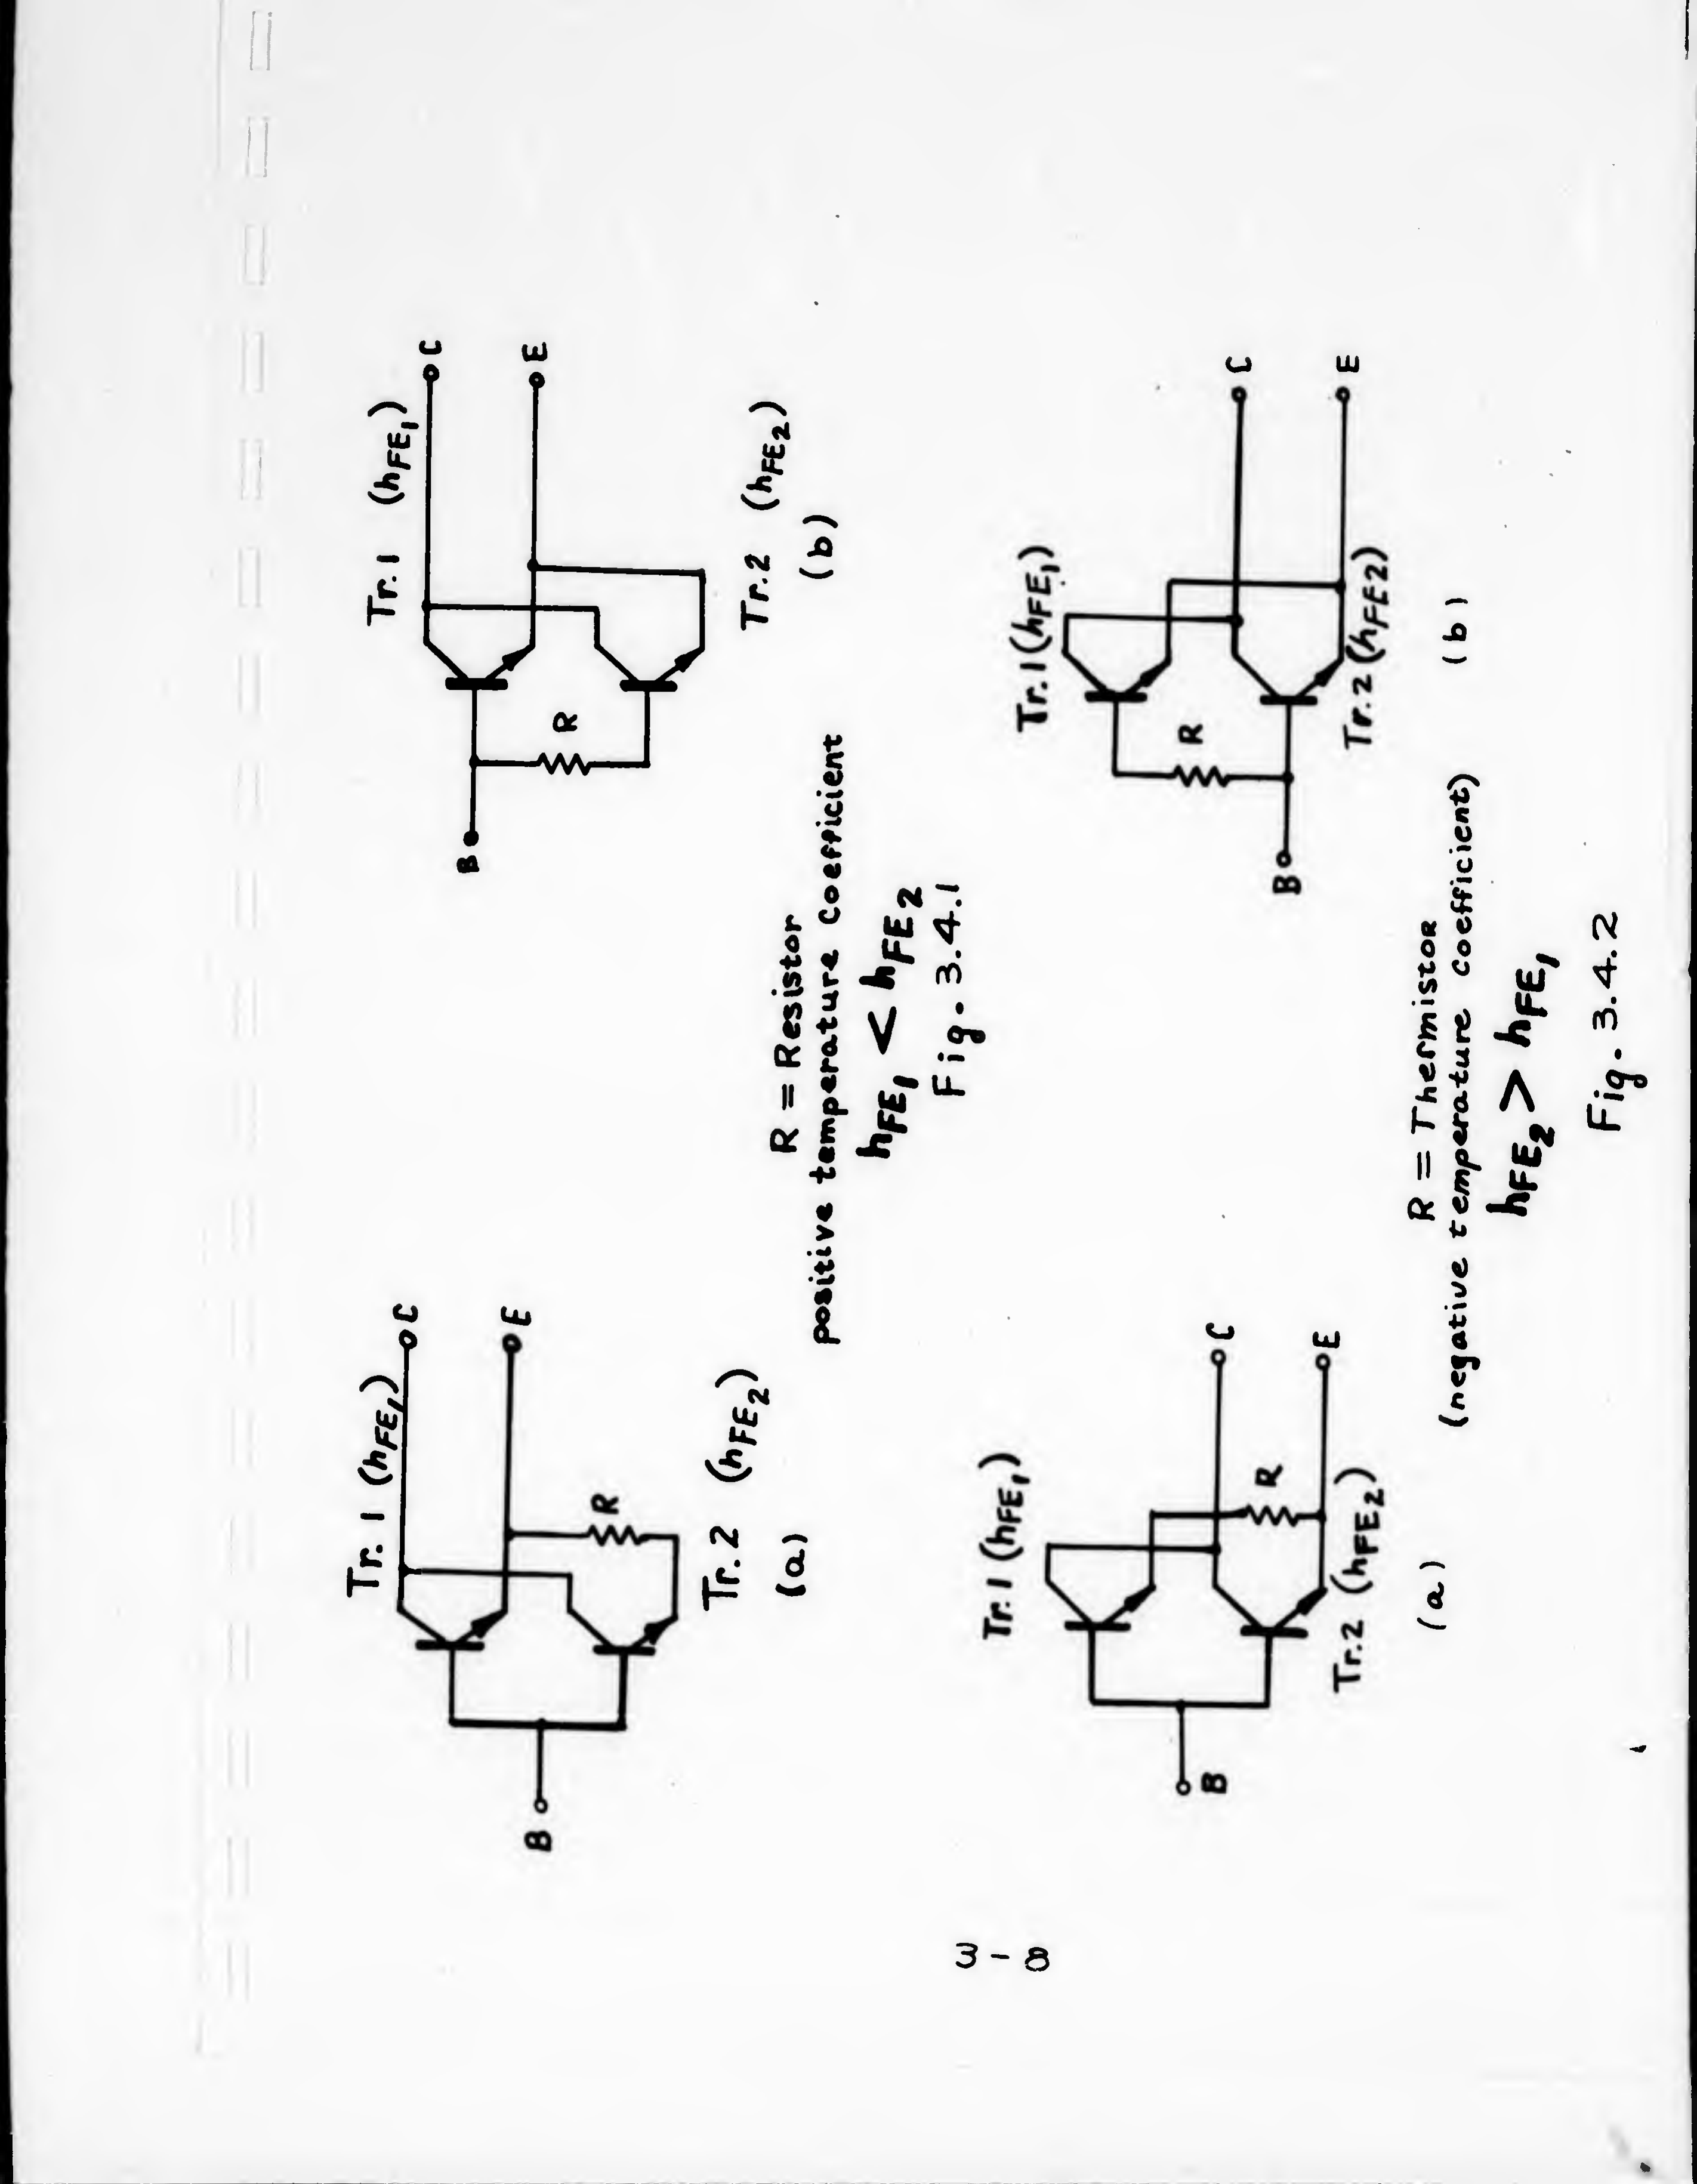 Tr. 1 (hFE1)
C
E
B
R
Tr. 2 (hFE2)
(a)
Tr. 1 (hFE1)
C
E
B
R
Tr. 2 (hFE2)
(b)
R = Resistor
positive temperature coefficient
hFE1 < hFE2
Fig. 3.4.1
Tr. 1 (hFE1)
C
E
B
R
Tr. 2 (hFE2)
(a)
Tr. 1 (hFE1)
C
E
B
R
Tr. 2 (hFE2)
(b)
R = Thermistor
(negative temperature coefficient)
hFE2 > hFE1
Fig. 3.4.2
3-8